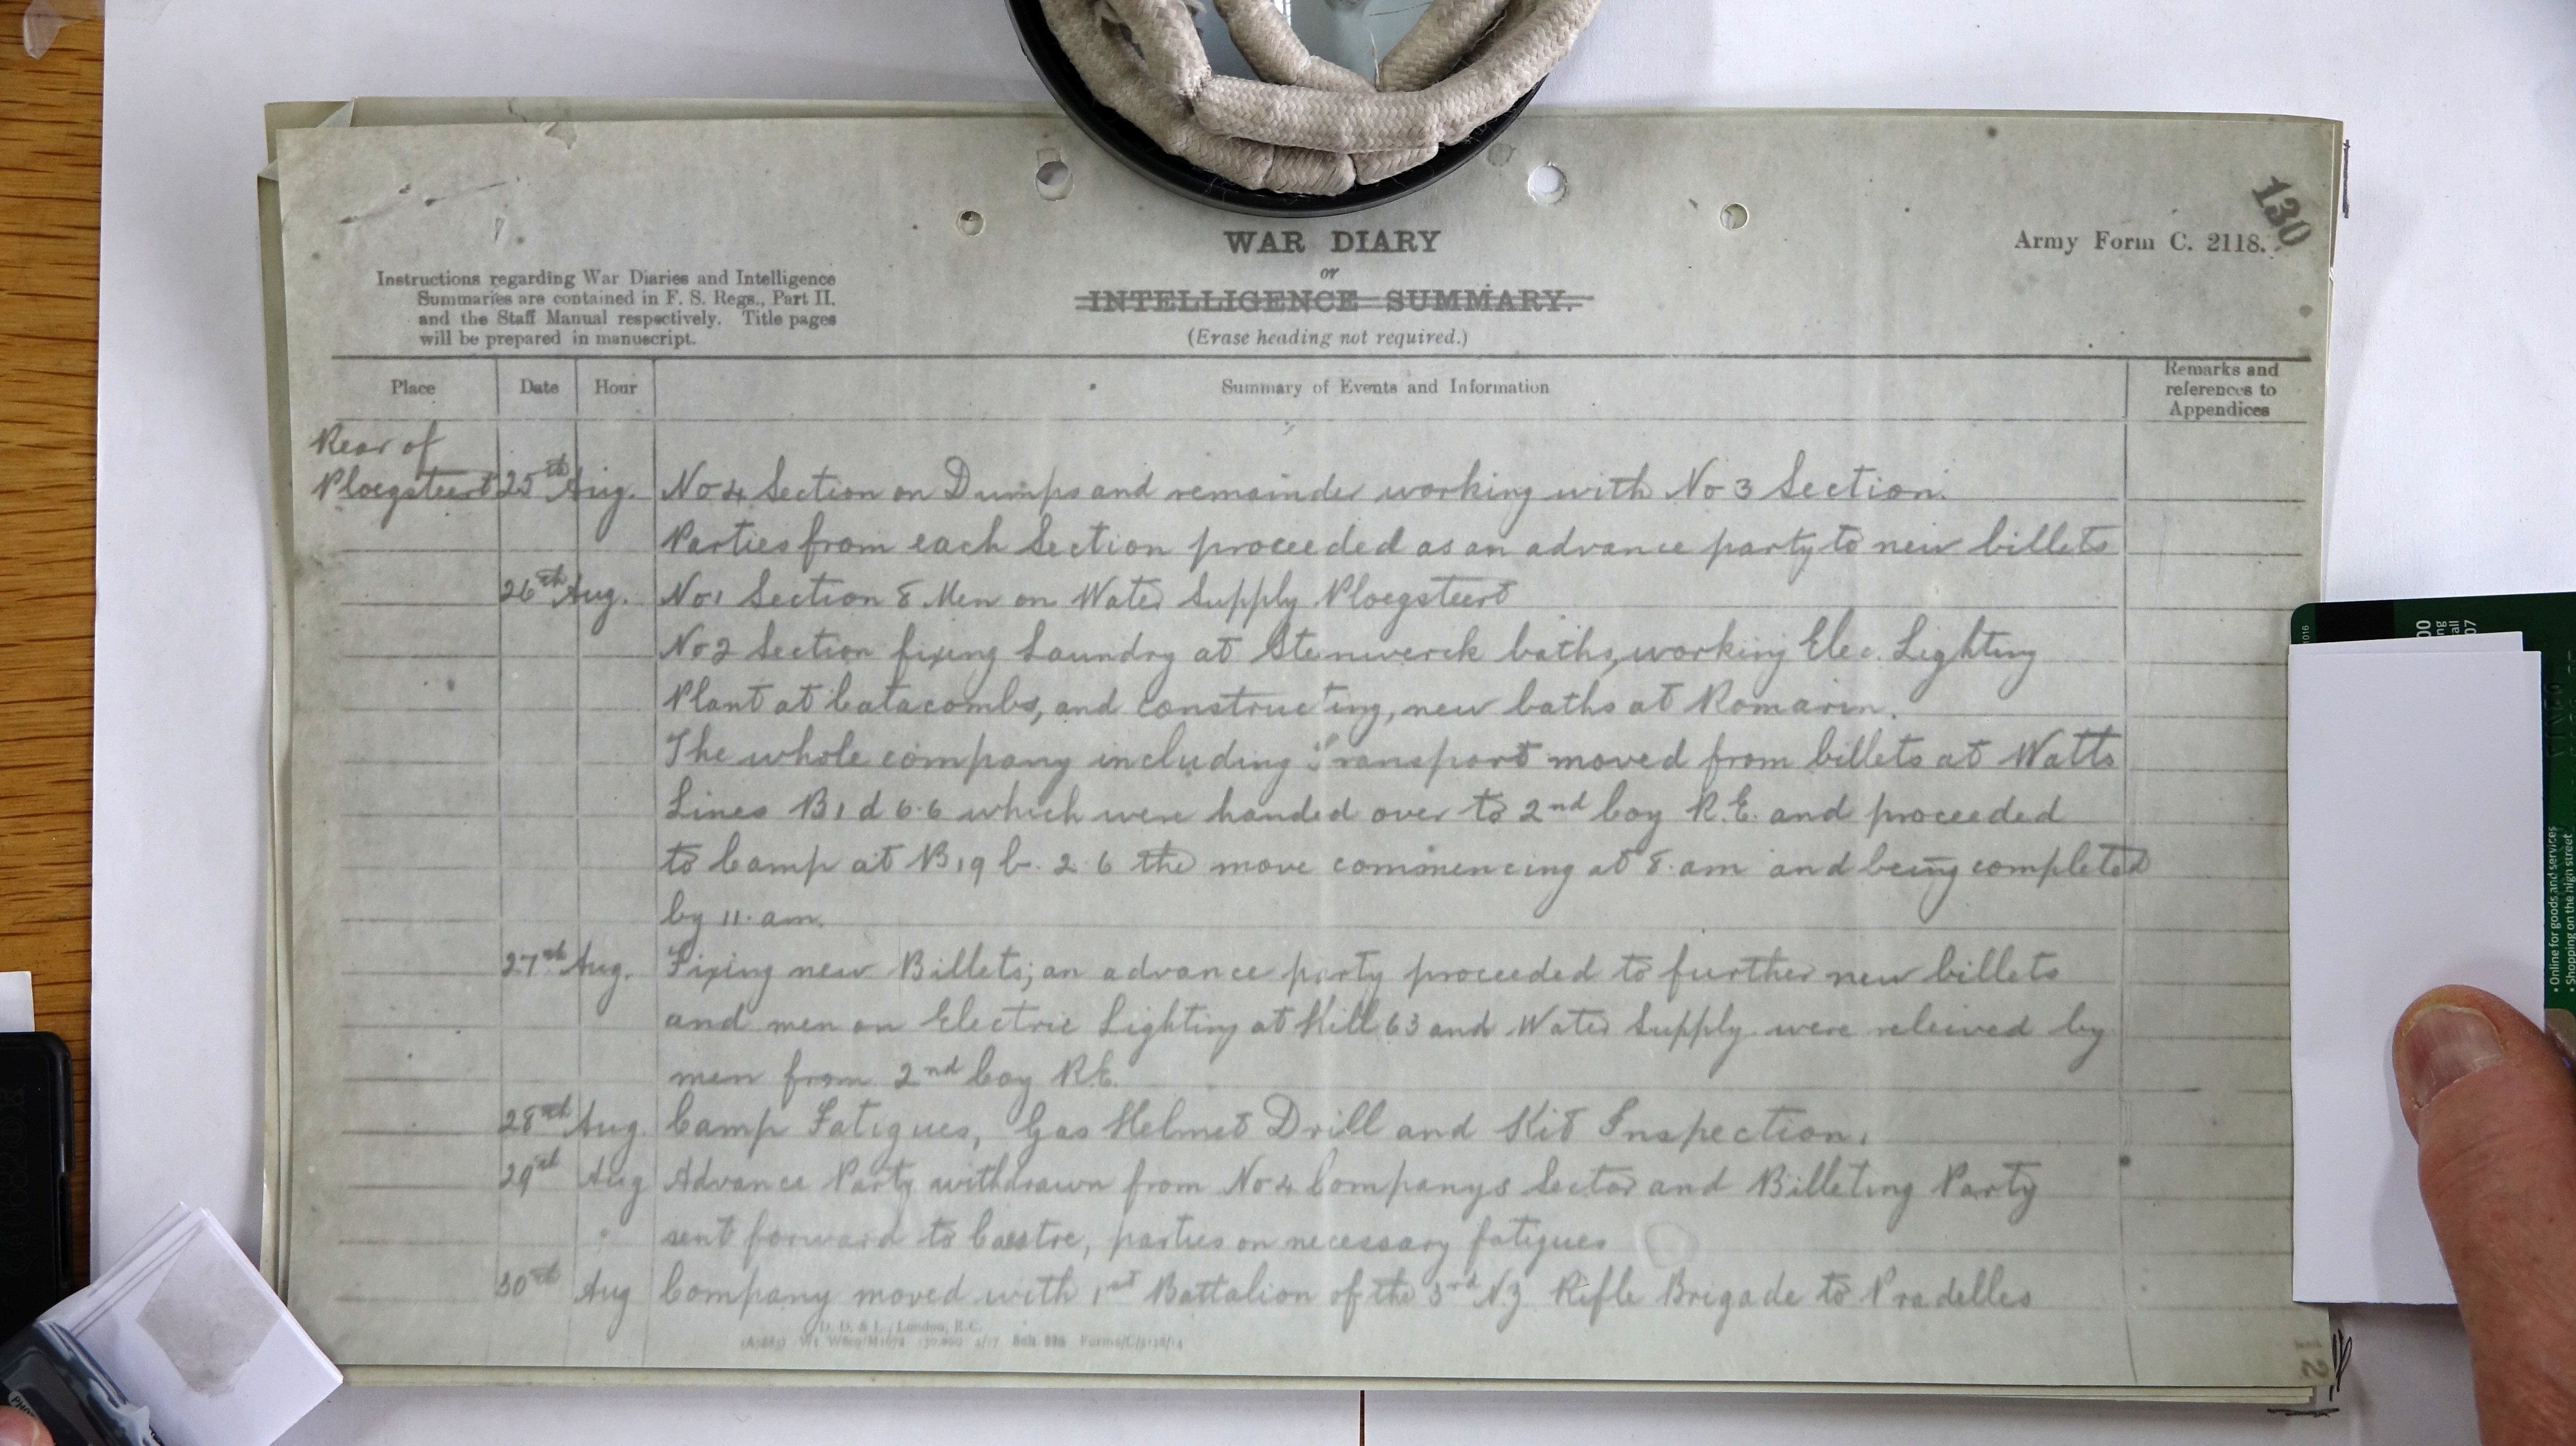 130
WAR DIARY
or
INTELLIGENCE SUMMARY.
(Erase heading not required.)
Army Form C. 2118.
Instructions regarding War Diaries and Intelligence
Summaries are contained in F. S. Regs., Part II.
and the Staff Manual respectively. Title pages
will be prepared in manuscript.
Place Date Hour Summary of Events and Information Remarks and references to Appendices
Rear of
Ploegsteert 25th Aug. No 4 Section on Dumps and remainder working with No 3 Section.
Parties from each Section proceeded as an advance party to new billets
26th Aug. No 1 Section 8 Men on Water Supply Ploegsteert
No 2 Section fixing Laundry at Stenwerck baths, working Elec. Lighting
Plant at Catacombs, and constructing, new baths at Romarin.
The whole company including Transport moved from billets at Watts
Lines B 1 d 6.6 which were handed over to 2nd Coy R.E. and proceeded
to Camp at B 19 b. 2 6 the move commencing at 8. am and being completed
by 11. am.
27th Aug. Fixing new Billets; an advance party proceeded to further new billets
and men on Electric Lighting at Hill 63 and Water Supply were releived by
men from 2nd Coy R.E.
28th Aug. Camp Fatigues, Gas Helmet Drill and Kit Inspection.
29th Aug Advance Party withdrawn from No 4 Companys Sector and Billeting Party
sent forward to Caestre, parties on necessary fatigues
30th Aug Company moved with 1st Battalion of the 3rd N.Z Rifle Brigade to Pradelles
D. D. & L., London, E.C.
12
• Online for goods and services
• Shopping on the high street